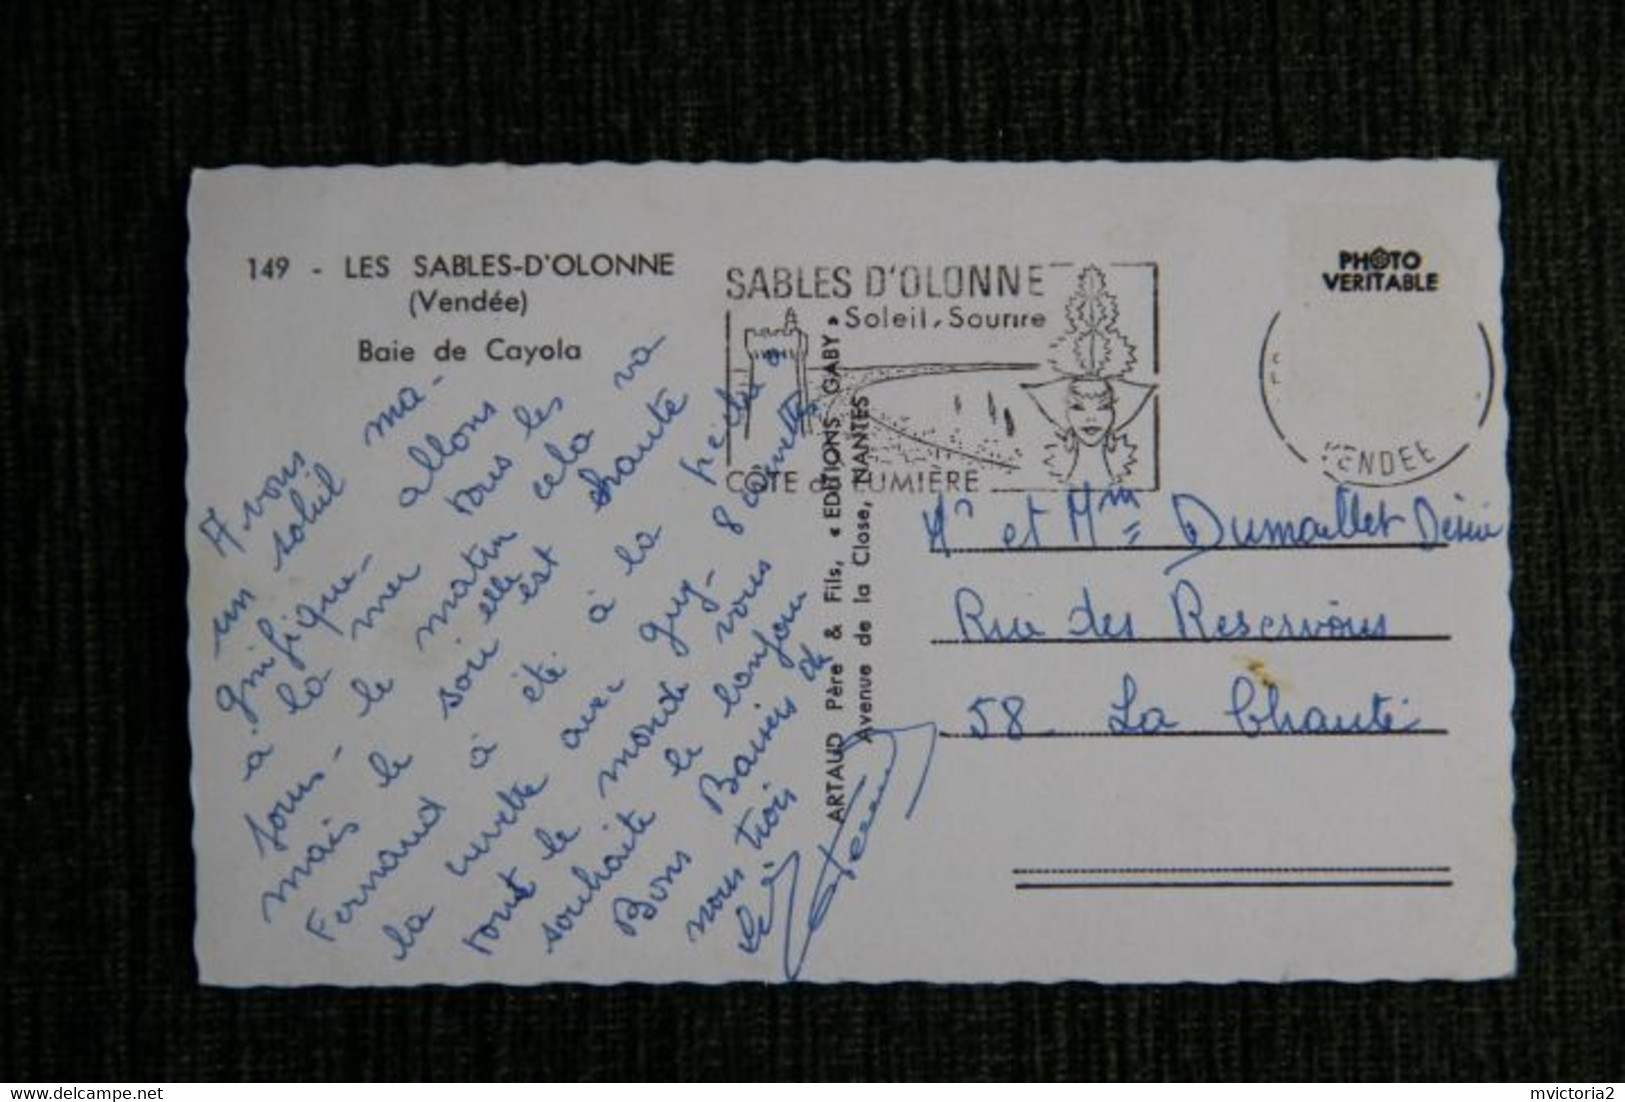 149 - LES SABLES-D'OLONNE
(Vendée)
Baie de Cayola
SABLES D'OLONNE
Soleil, Sourire
CÔTE de LUMIÈRE
PHOTO
VERITABLE
VENDEE
ARTAUD Père & Fils, « EDITIONS GABY »
Avenue de la Close, NANTES
A vous ma-
un soleil
gnifique - allons
à la mer tous les
jours - le matin cela va
mais le soir elle est chaude
Fernand à été à la pêche à
la crevette avec Guy - 8 crevettes
tout le monde vous
souhaite le bonjour
Bons Baisers de
nous trois
Mr et Mme Dumaillet Désiré
Rue des Reservoirs
58 La Charité